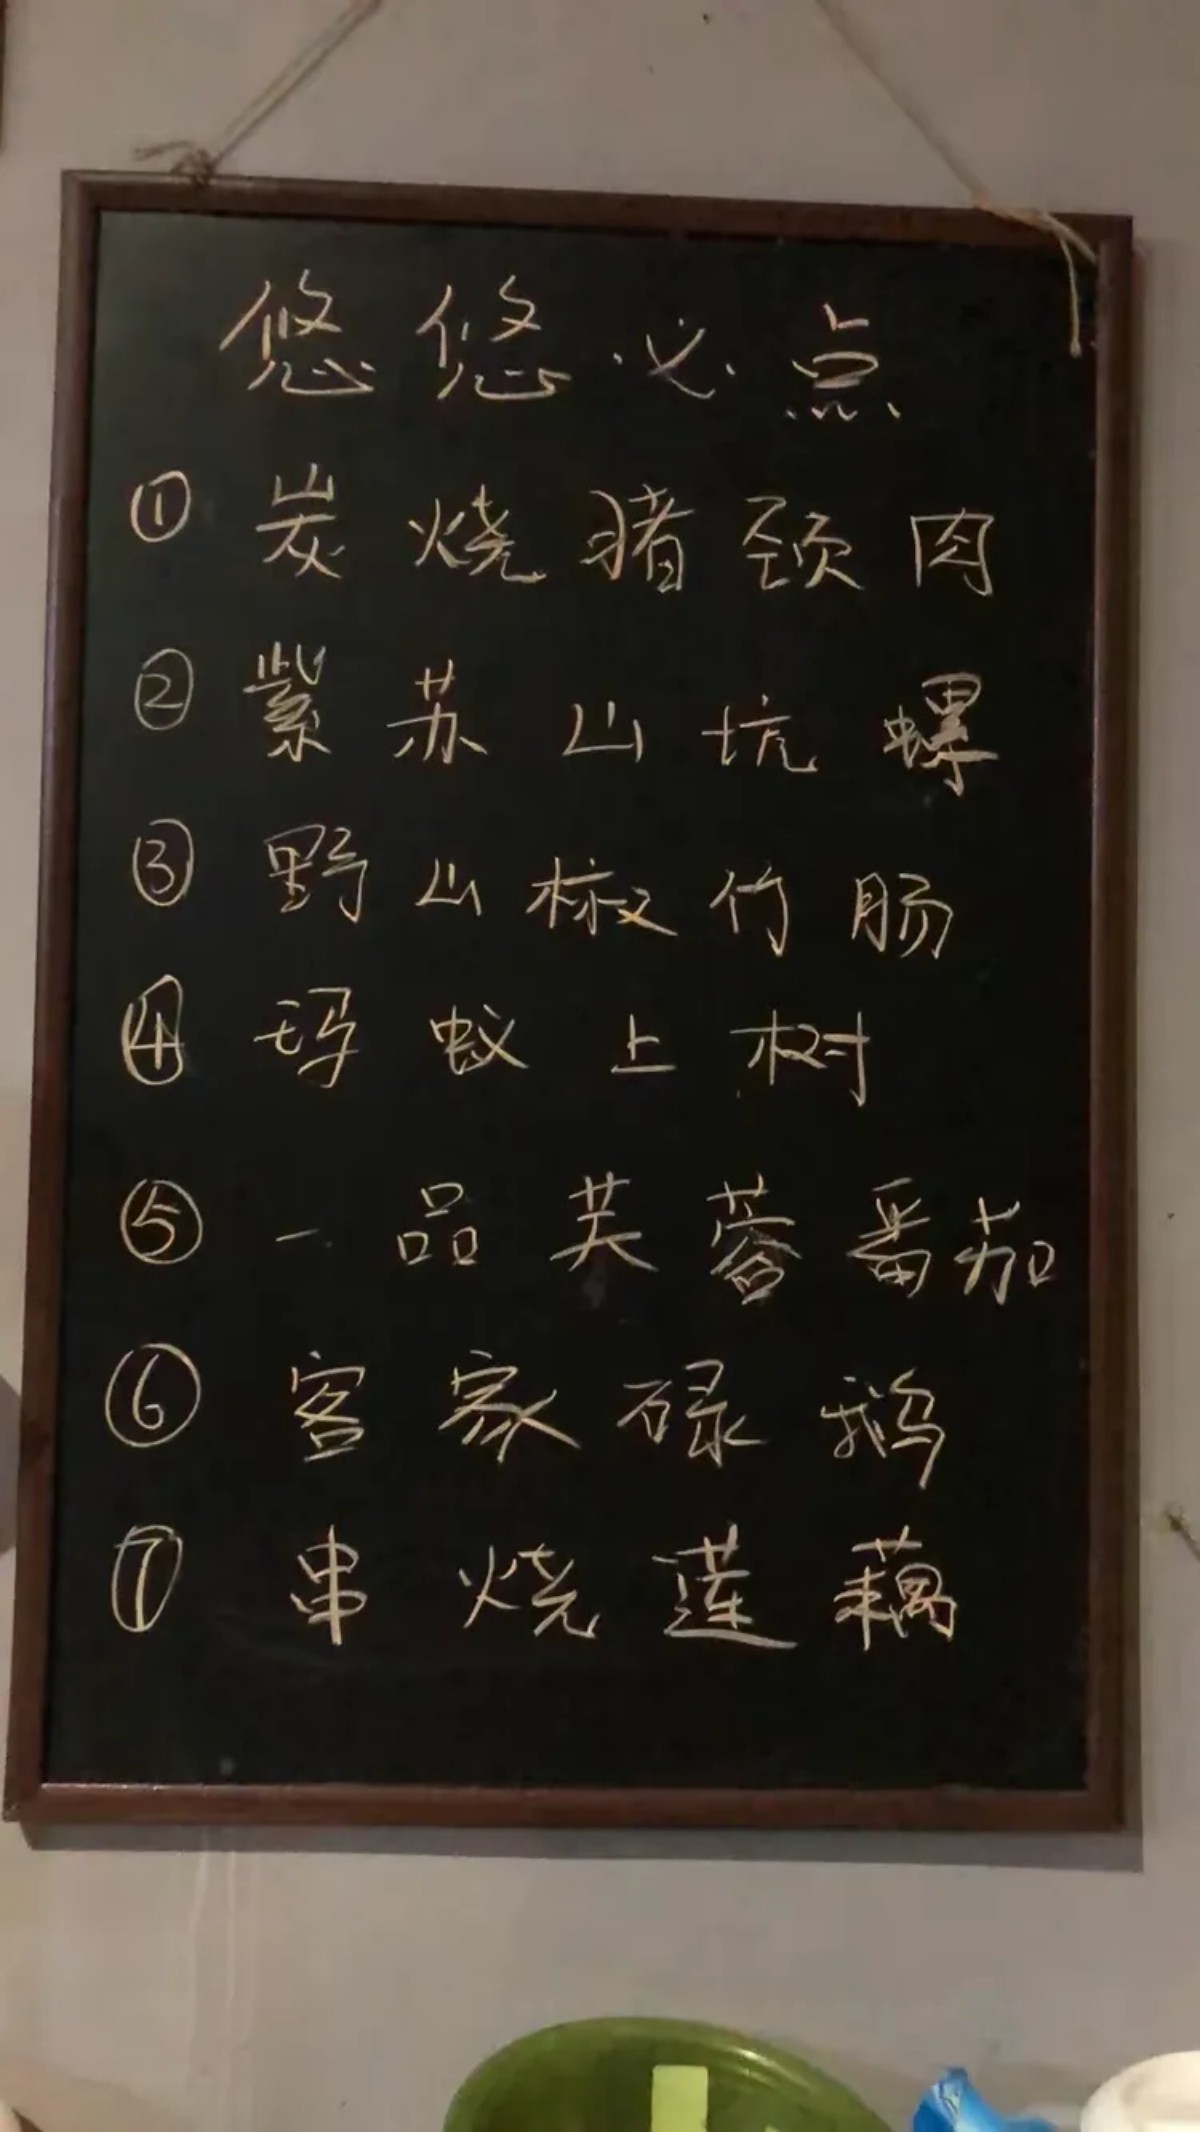 悠悠必点
① 炭烧猪颈肉
② 紫苏山坑螺
③ 野山椒竹肠
④ 玛蚁上树
⑤ 一品芙蓉番茄
⑥ 客家碌鹅
⑦ 串烧莲藕